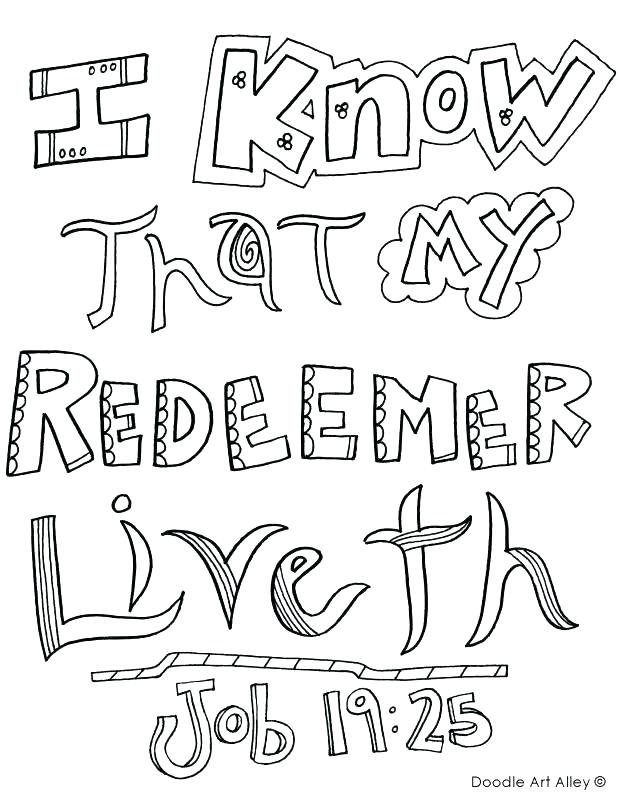 I Know
That My
REDEEMER
Liveth
Job 19:25
Doodle Art Alley ©